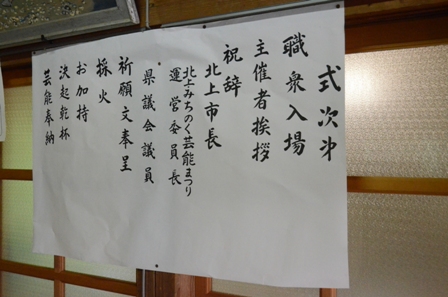 式次第
職衆入場
主催者挨拶
祝辞
北上市長
北上みちのく芸能まつり
運営委員長
県議会議員
祈願文奉呈
採火
お加持
決起乾杯
芸能奉納